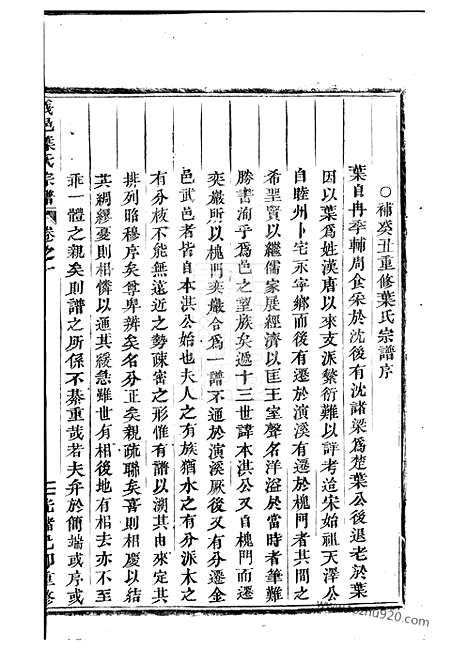 ○補癸丑重修葉氏宗譜序
葉自冉季輔周食采於沈後有沈諸梁爲楚葉公後退老於葉
因以葉爲姓漢唐以來支派繁衍難以詳考迨宋始祖天澤公
自睦州卜宅永寧鄉而後有遷於演溪有遷於槐門者其間之
希聖賢以繼儒家展經濟以匡王室聲名洋溢於當時者筆難
勝書洵乎爲邑之望族矣遞十三世諱本洪公又自槐門而遷
奕巖所以槐門奕巖合爲一譜不通於演溪厥後又有分遷金
邑武邑者皆自本洪公始也夫人之有族猶水之有分派木之
有分枝不能無遠近之勢疎密之形惟有譜以溯其由來定其
排列昭穆序矣尊卑辨矣名分正矣親疏聯矣喜則相慶以結
其綢繆憂則相憐以通其緩急雖世有相後地有相去亦不至
乖一體之親矣則譜之所係不綦重哉若夫弁於簡端或序或
邑葉氏宗譜 卷之一
光緒己卯重修
www.book920.com